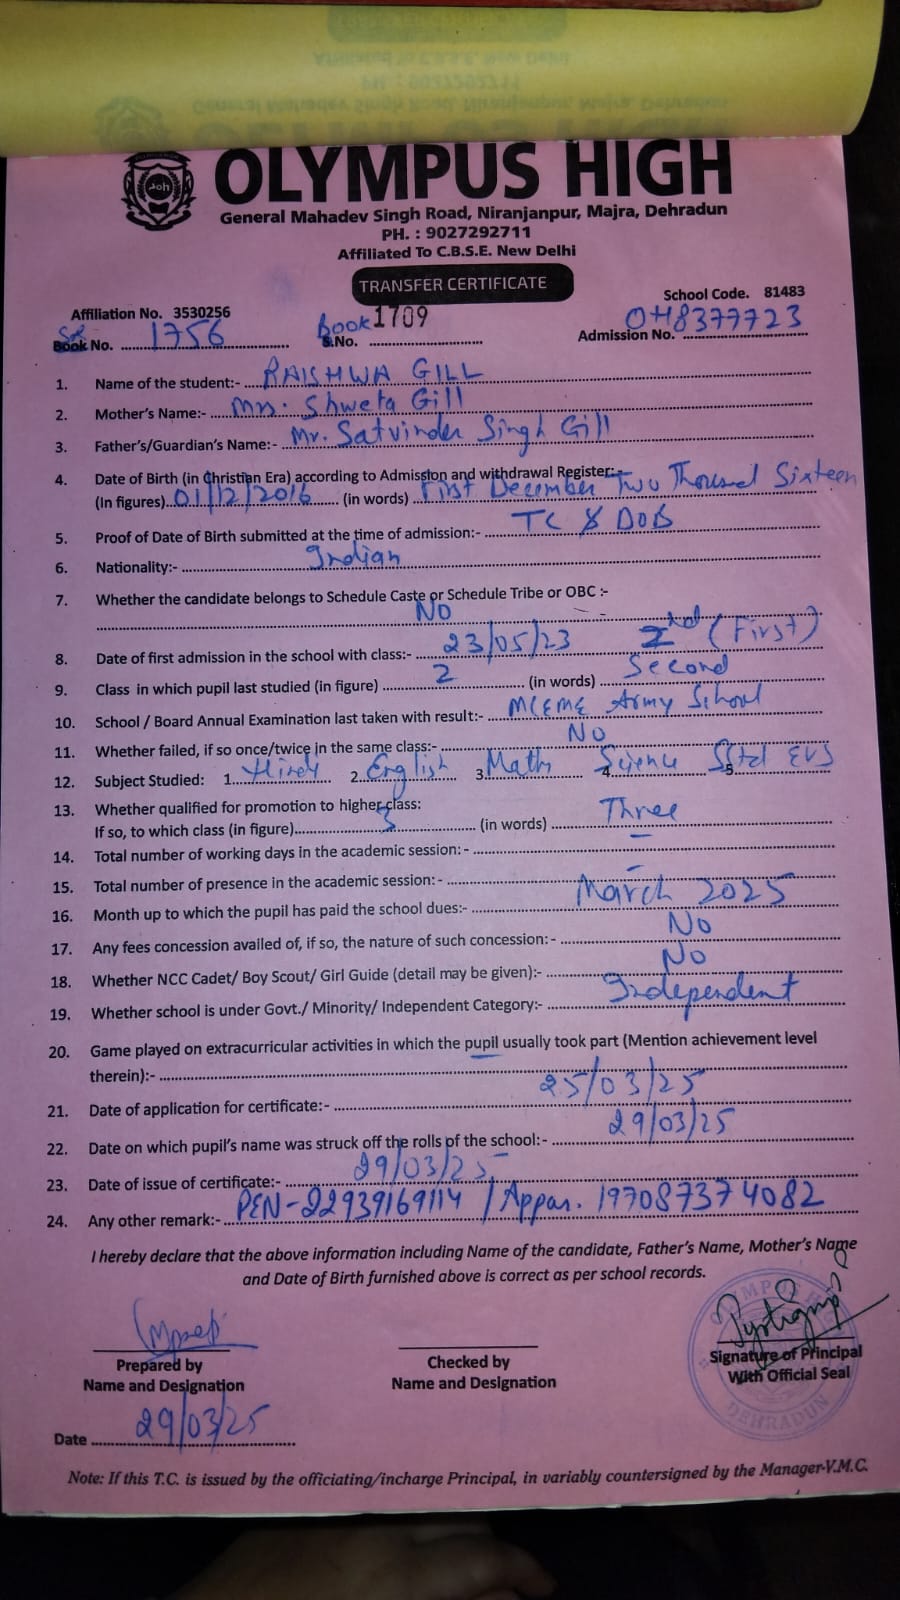 OLYMPUS HIGH
General Mahadev Singh Road, Niranjanpur, Majra, Dehradun
PH. : 9027292711
Affiliated To C.B.S.E. New Delhi
TRANSFER CERTIFICATE
Affiliation No. 3530256
School Code. 81483
Book No. 1756
Book 1709
S.No.
Admission No. OH8377723
1. Name of the student:- RAISHWA GILL
2. Mother's Name:- Mrs. Shweta Gill
3. Father's/Guardian's Name:- Mr. Satvinder Singh Gill
4. Date of Birth (in Christian Era) according to Admission and withdrawal Register:-
(In figures) 01/12/2016 (in words) First December Two Thousand Sixteen
5. Proof of Date of Birth submitted at the time of admission:- TC & DOB
6. Nationality:- Indian
7. Whether the candidate belongs to Schedule Caste or Schedule Tribe or OBC :-
NO
8. Date of first admission in the school with class:- 23/05/23 2nd (First)
9. Class in which pupil last studied (in figure) 2 (in words) Second
10. School / Board Annual Examination last taken with result:- MCEME Army School
11. Whether failed, if so once/twice in the same class:- No
12. Subject Studied: 1. Hindi 2. English 3. Maths 4. Science 5. EVS
13. Whether qualified for promotion to higher class:
If so, to which class (in figure) 3 (in words) Three
14. Total number of working days in the academic session:- –
15. Total number of presence in the academic session:- –
16. Month up to which the pupil has paid the school dues:- March 2025
17. Any fees concession availed of, if so, the nature of such concession:- No
18. Whether NCC Cadet/ Boy Scout/ Girl Guide (detail may be given):- No
19. Whether school is under Govt./ Minority/ Independent Category:- Independent
20. Game played on extracurricular activities in which the pupil usually took part (Mention achievement level
therein):-
21. Date of application for certificate:- 25/03/25
22. Date on which pupil's name was struck off the rolls of the school:- 29/03/25
23. Date of issue of certificate:- 29/03/25
24. Any other remark:- PEN-22939169114 / Appar. 197087374082
I hereby declare that the above information including Name of the candidate, Father's Name, Mother's Name
and Date of Birth furnished above is correct as per school records.
Prepared by
Name and Designation
Checked by
Name and Designation
Signature of Principal
With Official Seal
DEHRADUN
Date 29/03/25
Note: If this T.C. is issued by the officiating/incharge Principal, in variably countersigned by the Manager-V.M.C.